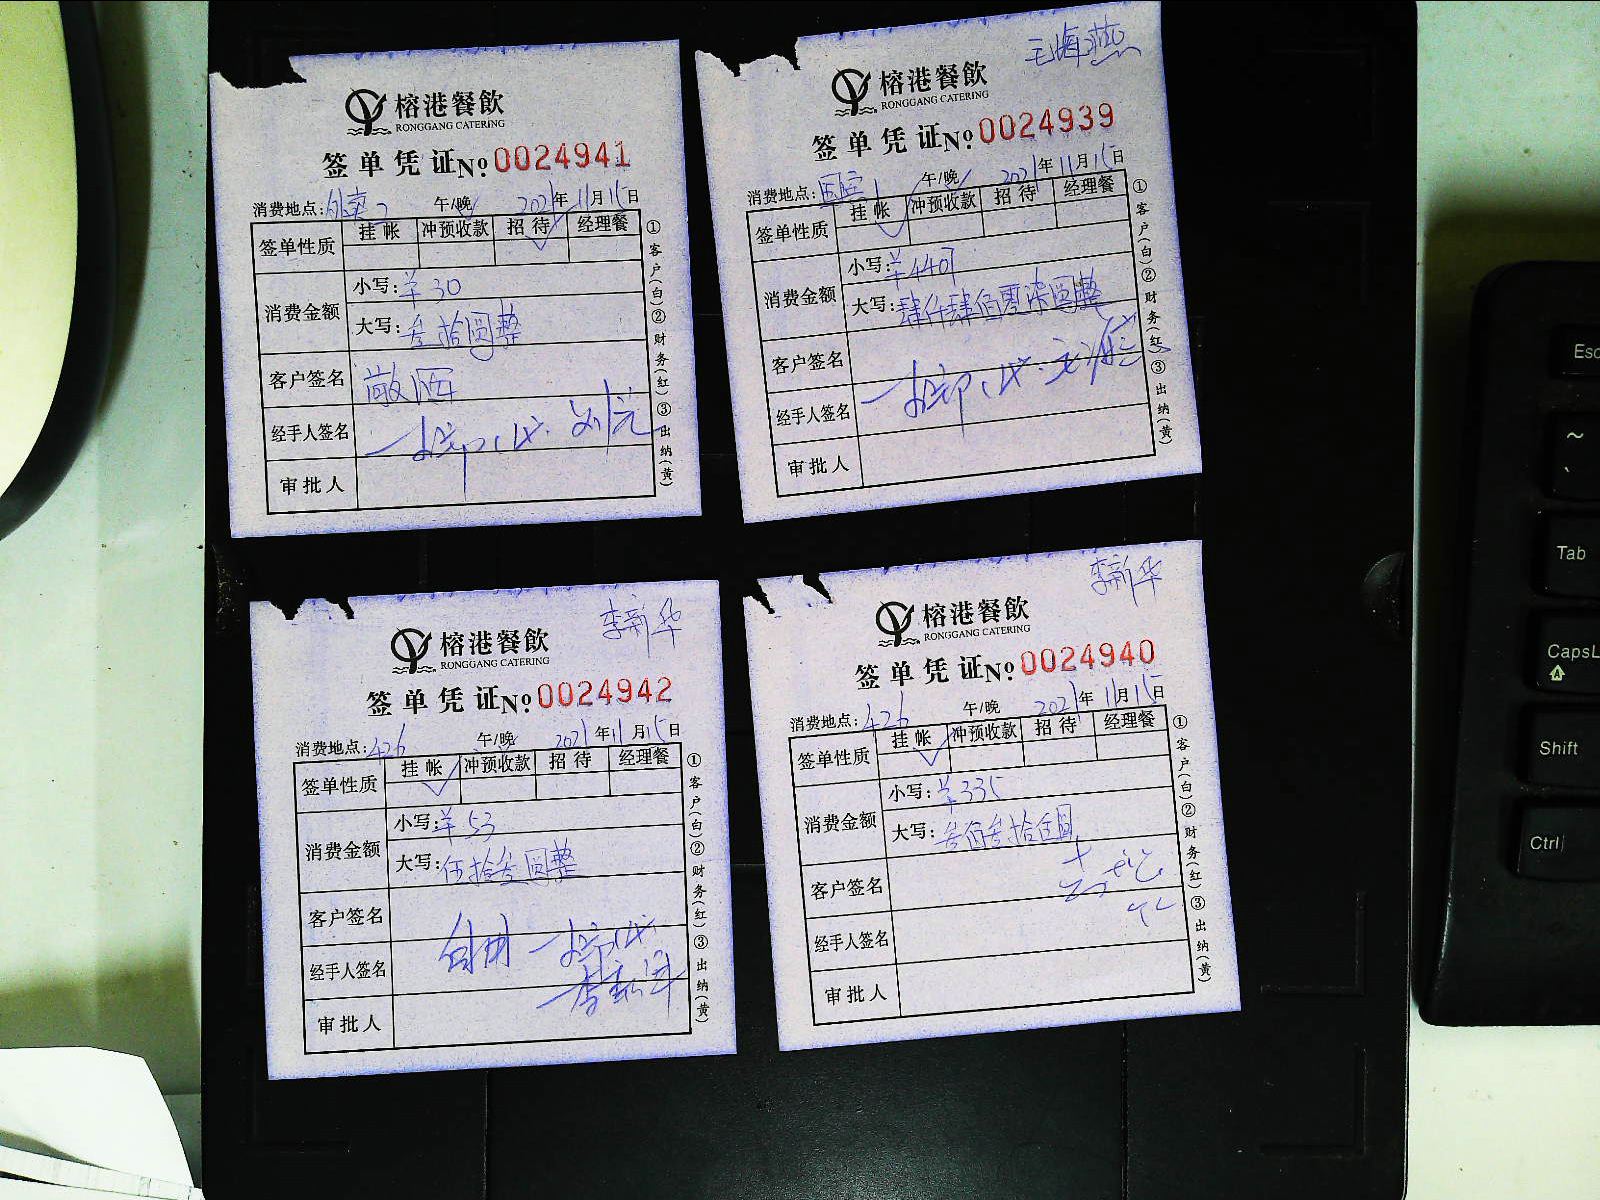 榕港餐飲
RONGGANG CATERING
签单凭证 No 0024941
消费地点: 午/晚 2021年11月15日
签单性质 挂帐 冲预收款 招待 经理餐
消费金额 小写:¥30
大写:叁拾圆整
客户签名 敬酒
经手人签名
审批人
①客户(白)②财务(红)③出纳(黄)
王海燕
榕港餐飲
RONGGANG CATERING
签单凭证 No 0024939
消费地点: 午/晚 2021年11月15日
签单性质 挂帐 冲预收款 招待 经理餐
消费金额 小写:¥4407
大写:肆仟肆佰零柒圆整
客户签名
经手人签名
审批人
①客户(白)②财务(红)③出纳(黄)
李新华
榕港餐飲
RONGGANG CATERING
签单凭证 No 0024942
消费地点:426 午/晚 2021年11月15日
签单性质 挂帐 冲预收款 招待 经理餐
消费金额 小写:¥53
大写:伍拾叁圆整
客户签名
经手人签名 自用
审批人
①客户(白)②财务(红)③出纳(黄)
李新华
榕港餐飲
RONGGANG CATERING
签单凭证 No 0024940
消费地点:426 午/晚 2021年11月15日
签单性质 挂帐 冲预收款 招待 经理餐
消费金额 小写:¥335
大写:叁佰叁拾伍圆
客户签名
经手人签名
审批人
①客户(白)②财务(红)③出纳(黄)
Esc
~
`
Tab
CapsL
Shift
Ctrl